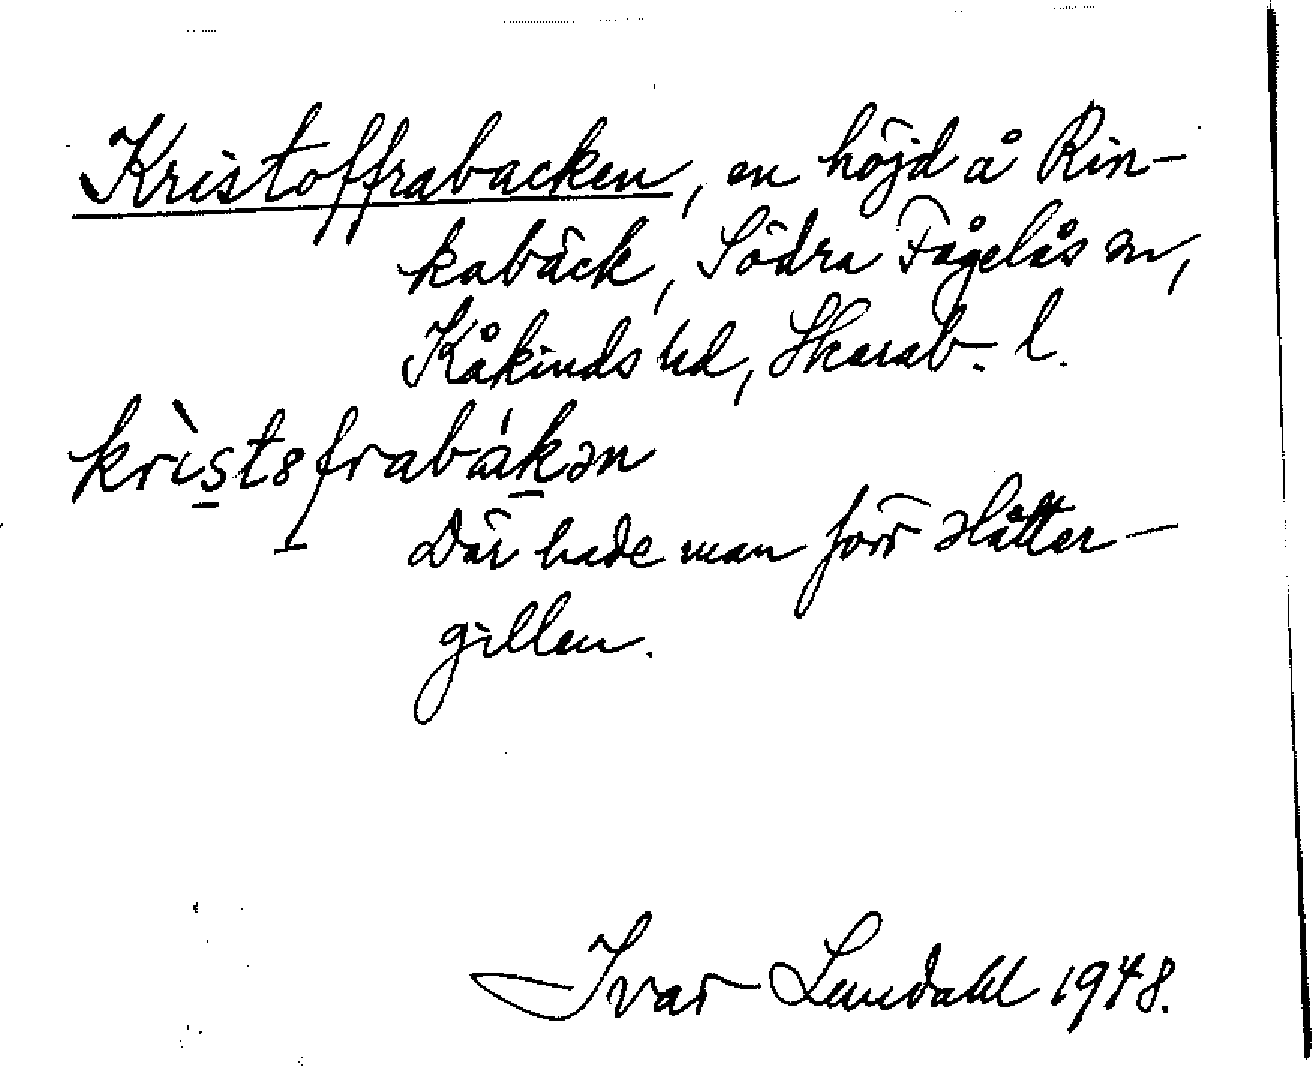 Kristoffrabacken, en höjd å Rin-
kabäck, Södra Fågelås sn,
Kåkinds hd, Skarab. l.
krìstsfrabákən
Där hade man förr slåtter-
gillen.
Ivar Lundahl 1948.